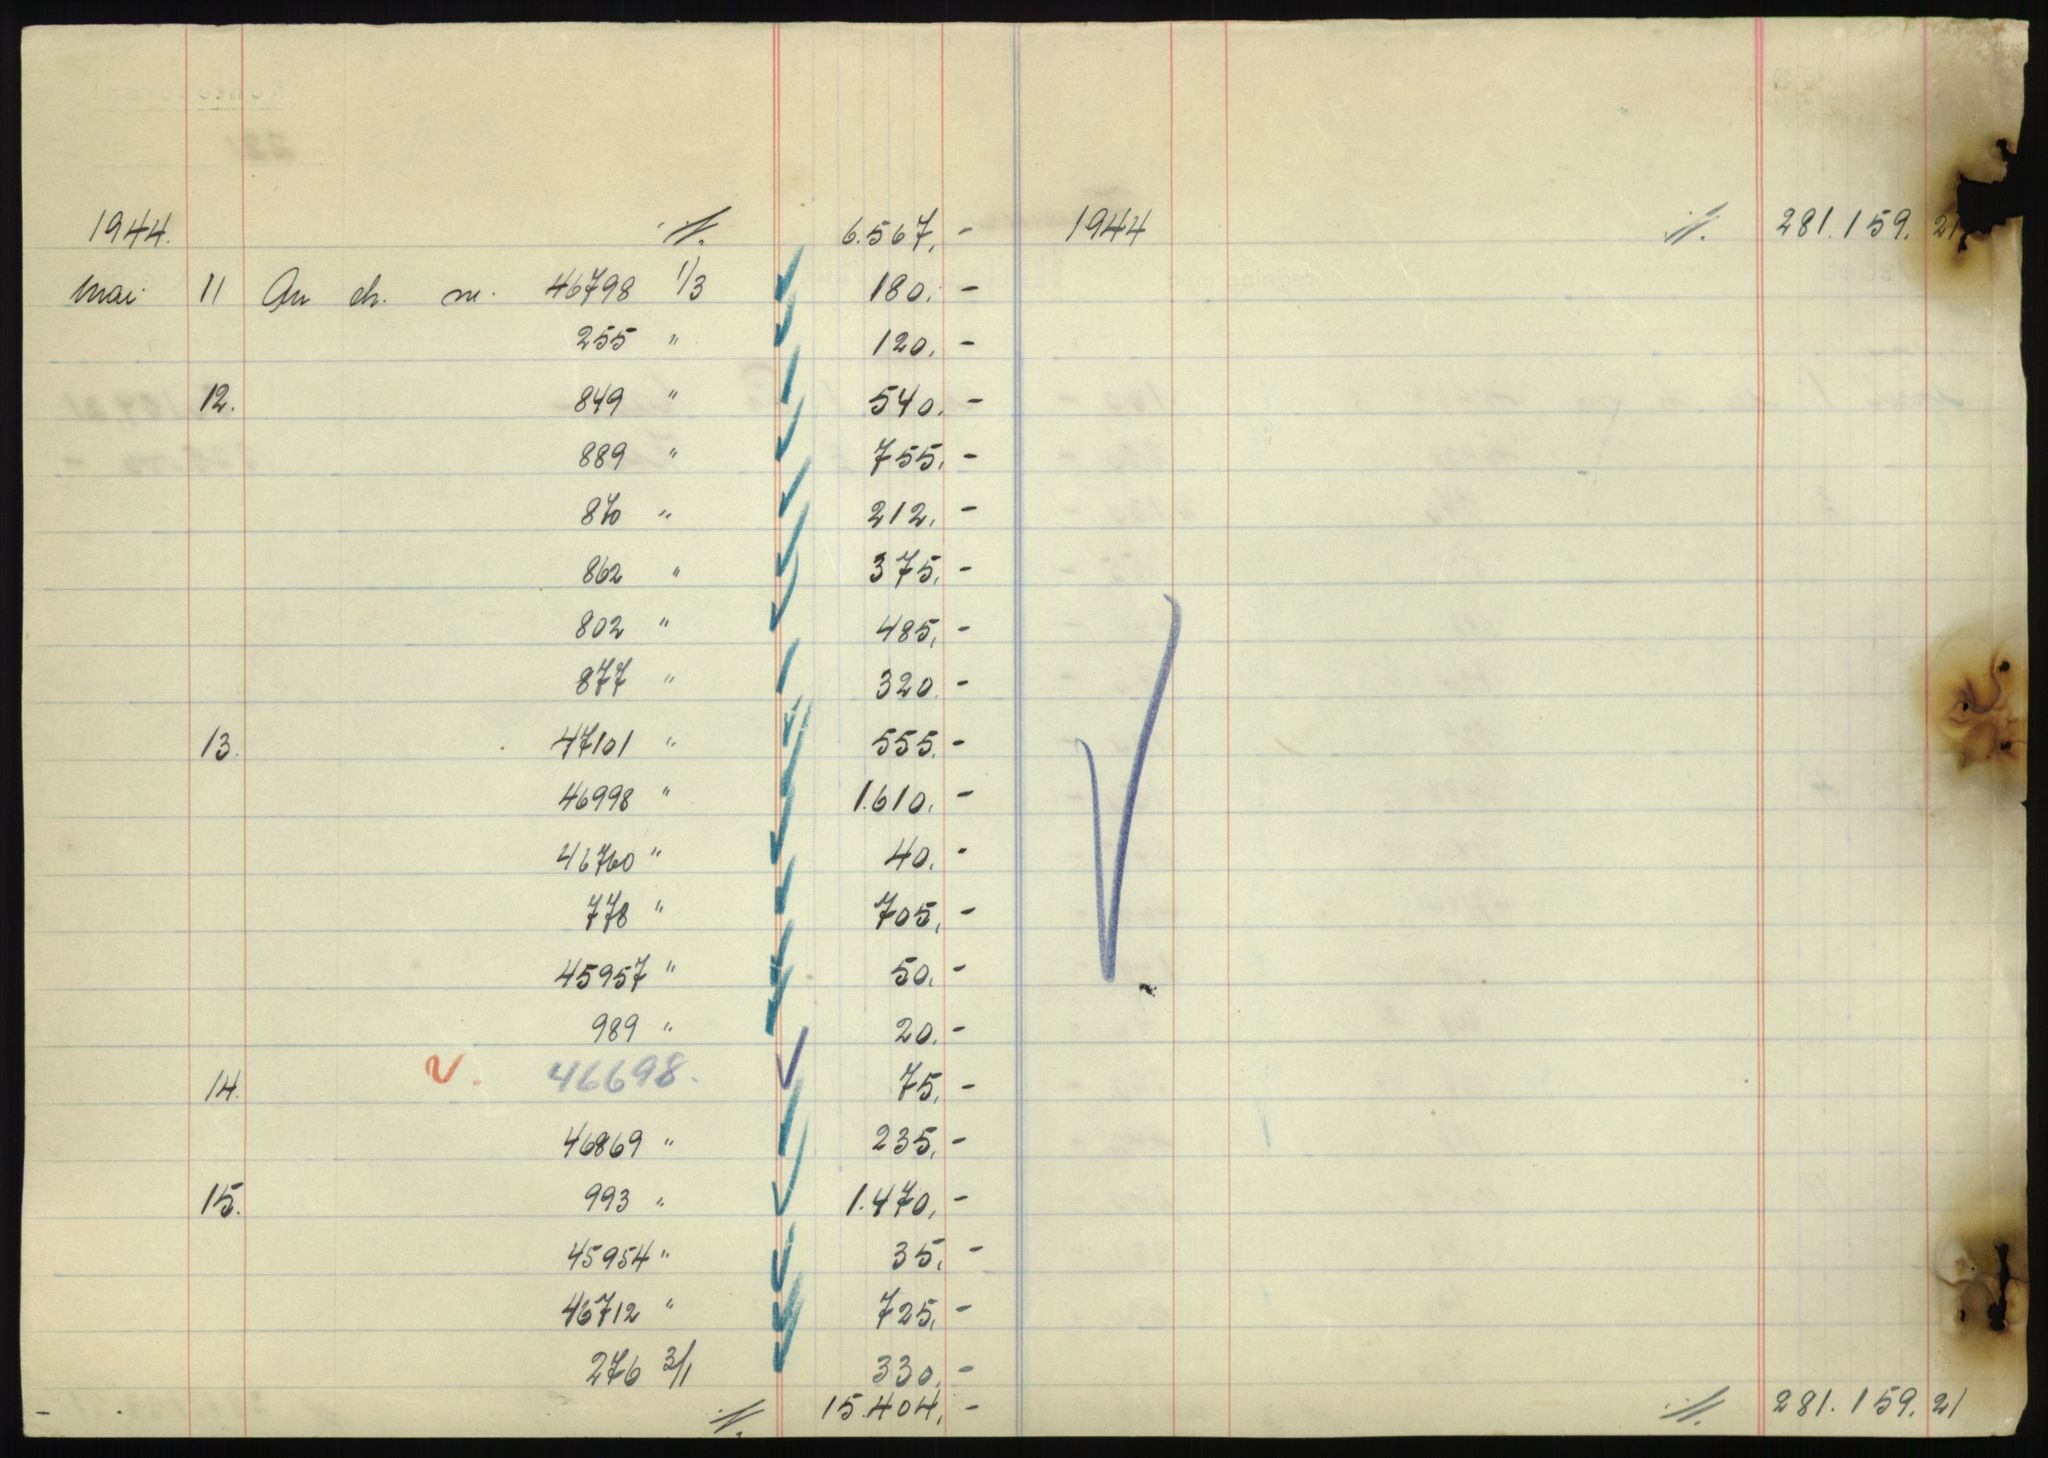 1944. ·/· 6.567,- 1944 ·/· 281.159.21
Mai 11 An ch. nr. 46798 1/3 180,-
255 " 120,-
12. 849 " 540,-
889 " 755,-
870 " 212,-
862 " 375,-
802 " 485,-
877 " 320,-
13. 47101 " 555,-
46998 " 1.610,-
46760 " 40,-
778 " 705,-
45957 " 50,-
989 " 20,-
14. 46698. 75,-
46869 " 235,-
15. 993 " 1.470,-
45954 " 35,-
46712 " 725,-
276 3/1 330,-
·/· 15.404,- ·/· 281.159.21